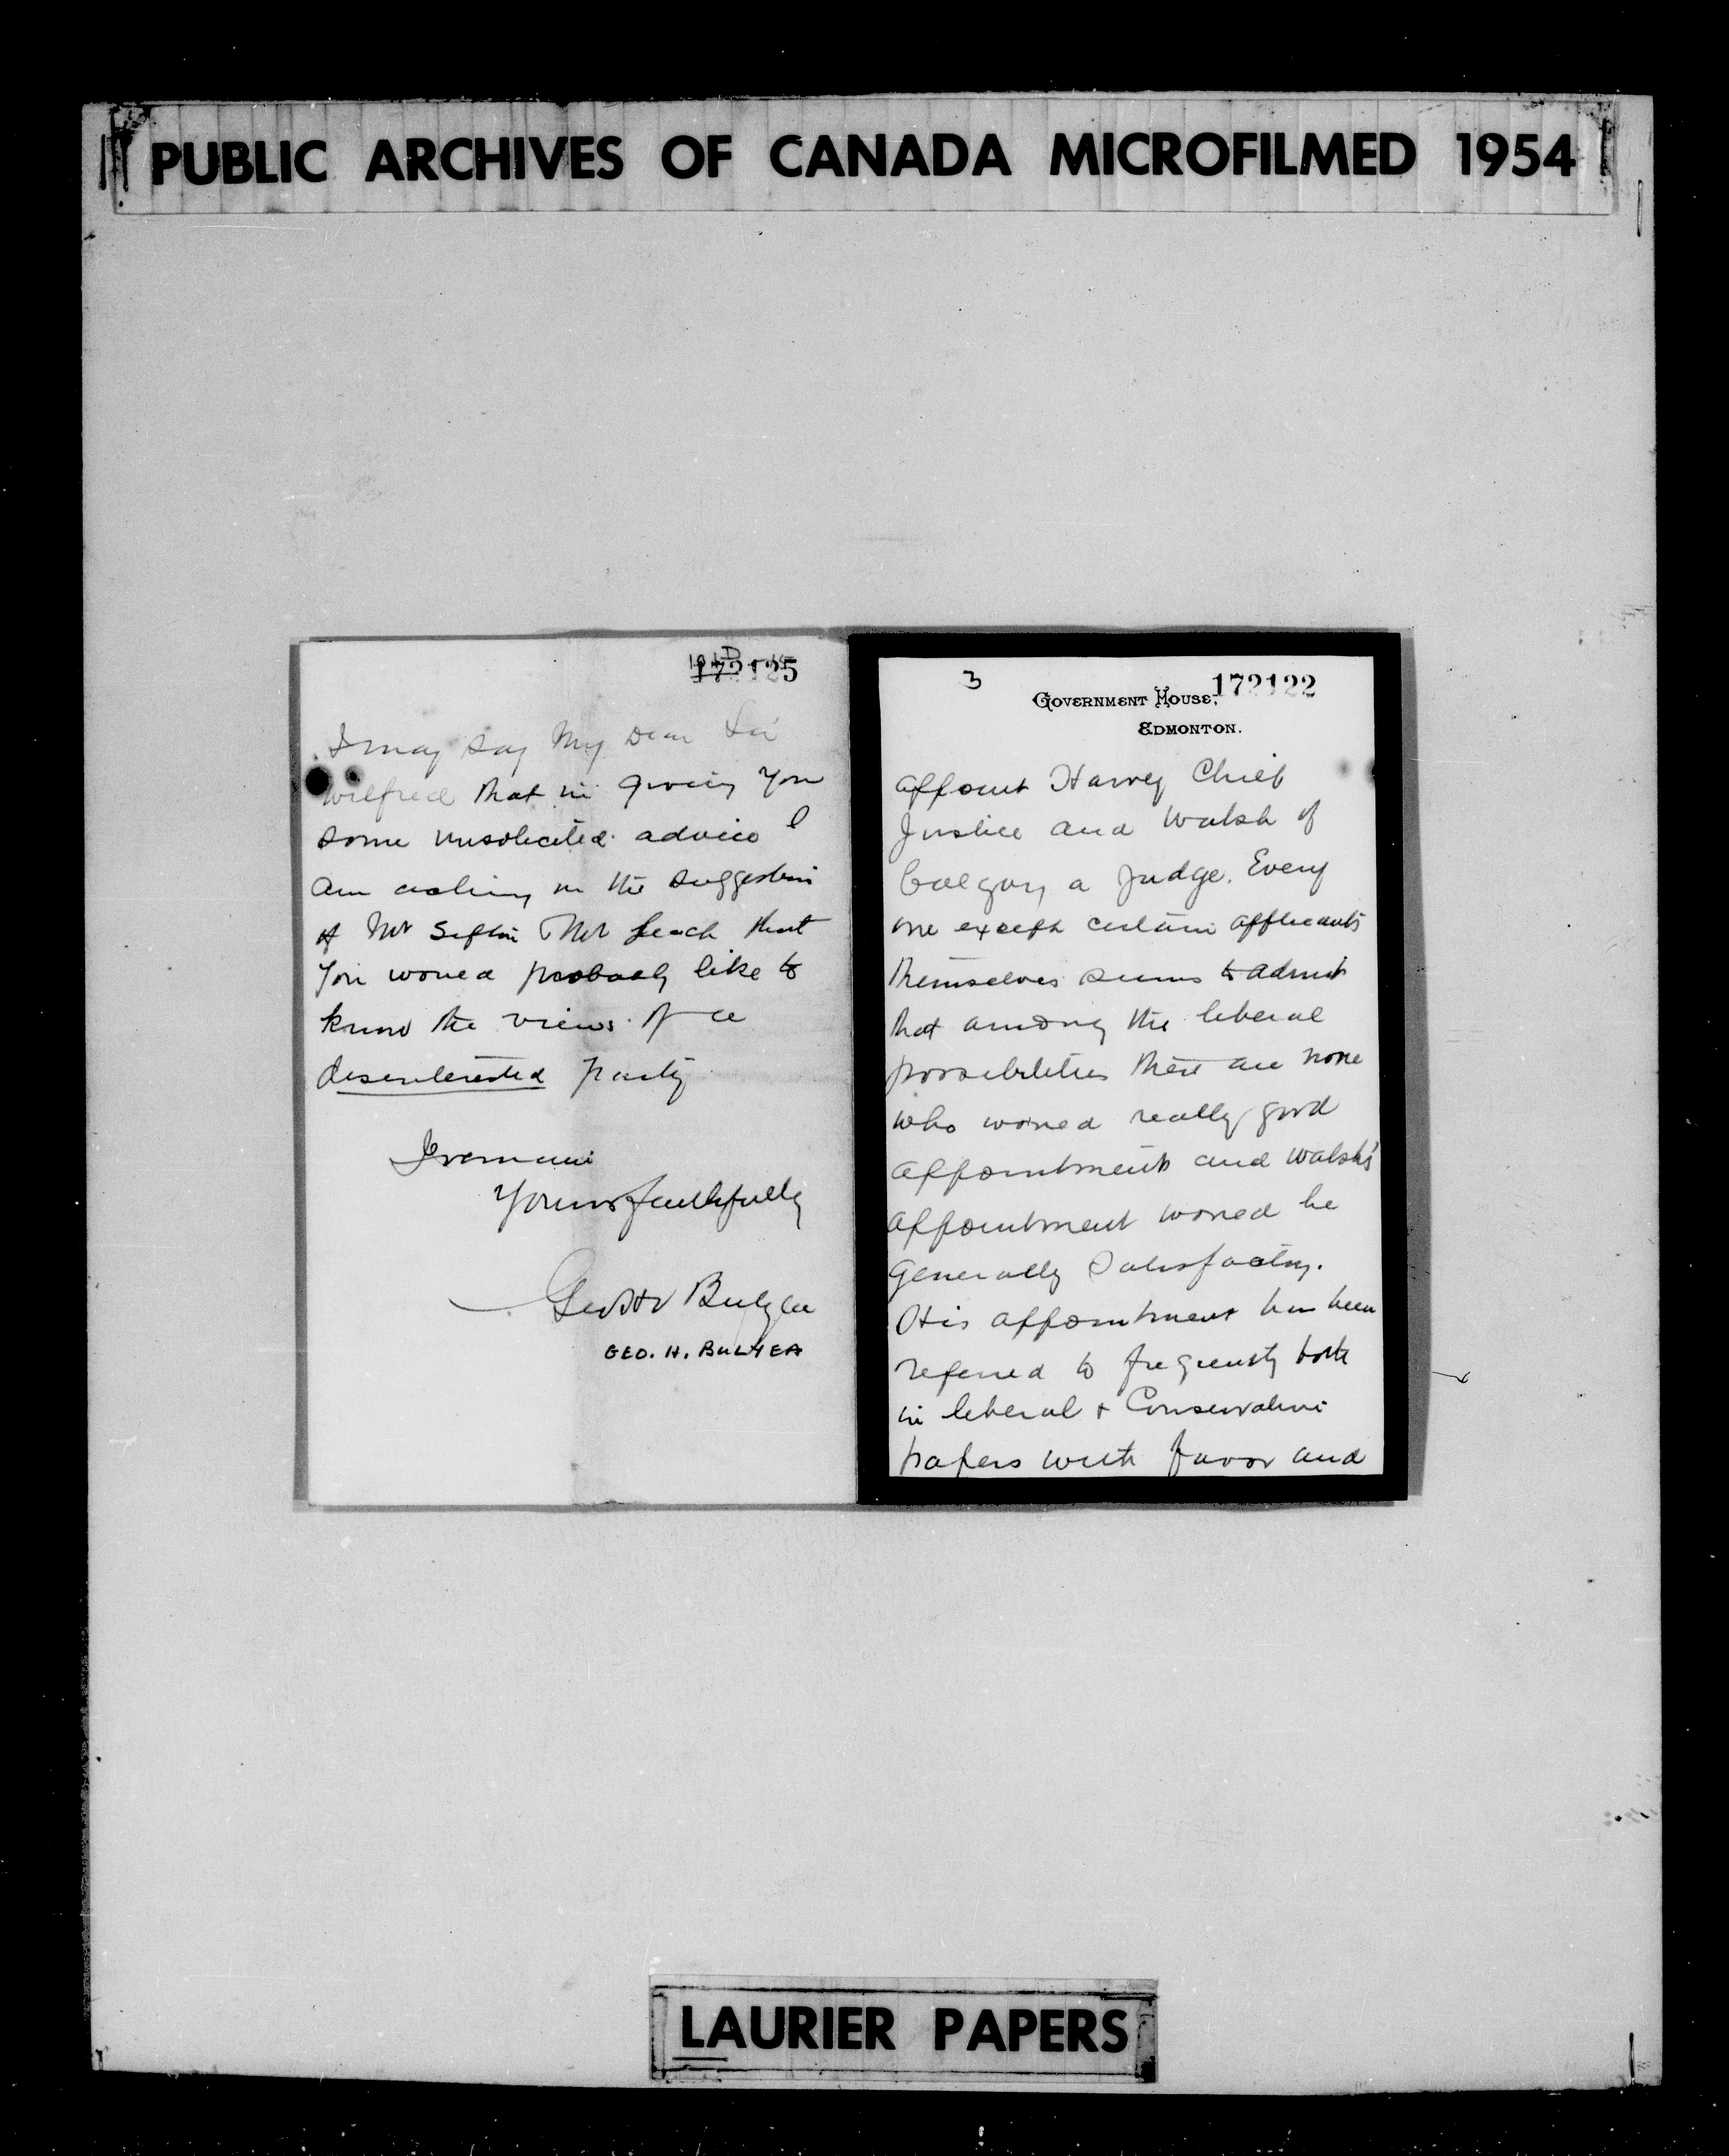 PUBLIC ARCHIVES OF CANADA MICROFILMED 1954
172125
I may say My Dear Sir
Wilfred that in giving you
some unsolicited advice I
am acting on the suggestion
of Mr Sifton & Mr Leech that
you would probably like to
know the views of a
desenterested party
I remain
Yours faithfully
Geo H V Bulyea
GEO. H. BULYEA
3
172122
GOVERNMENT HOUSE,
EDMONTON.
appoint Harvey Chief
Justice and Walsh of
Calgary a Judge. Every
one except certain applicants
themselves seems to admit
that among the liberal
possibilities there are none
who would really good
appointments and Walsh's
appointment would be
generally satisfactory.
His appointment has been
referred to frequently both
in liberal & Conservative
papers with favor and
LAURIER PAPERS